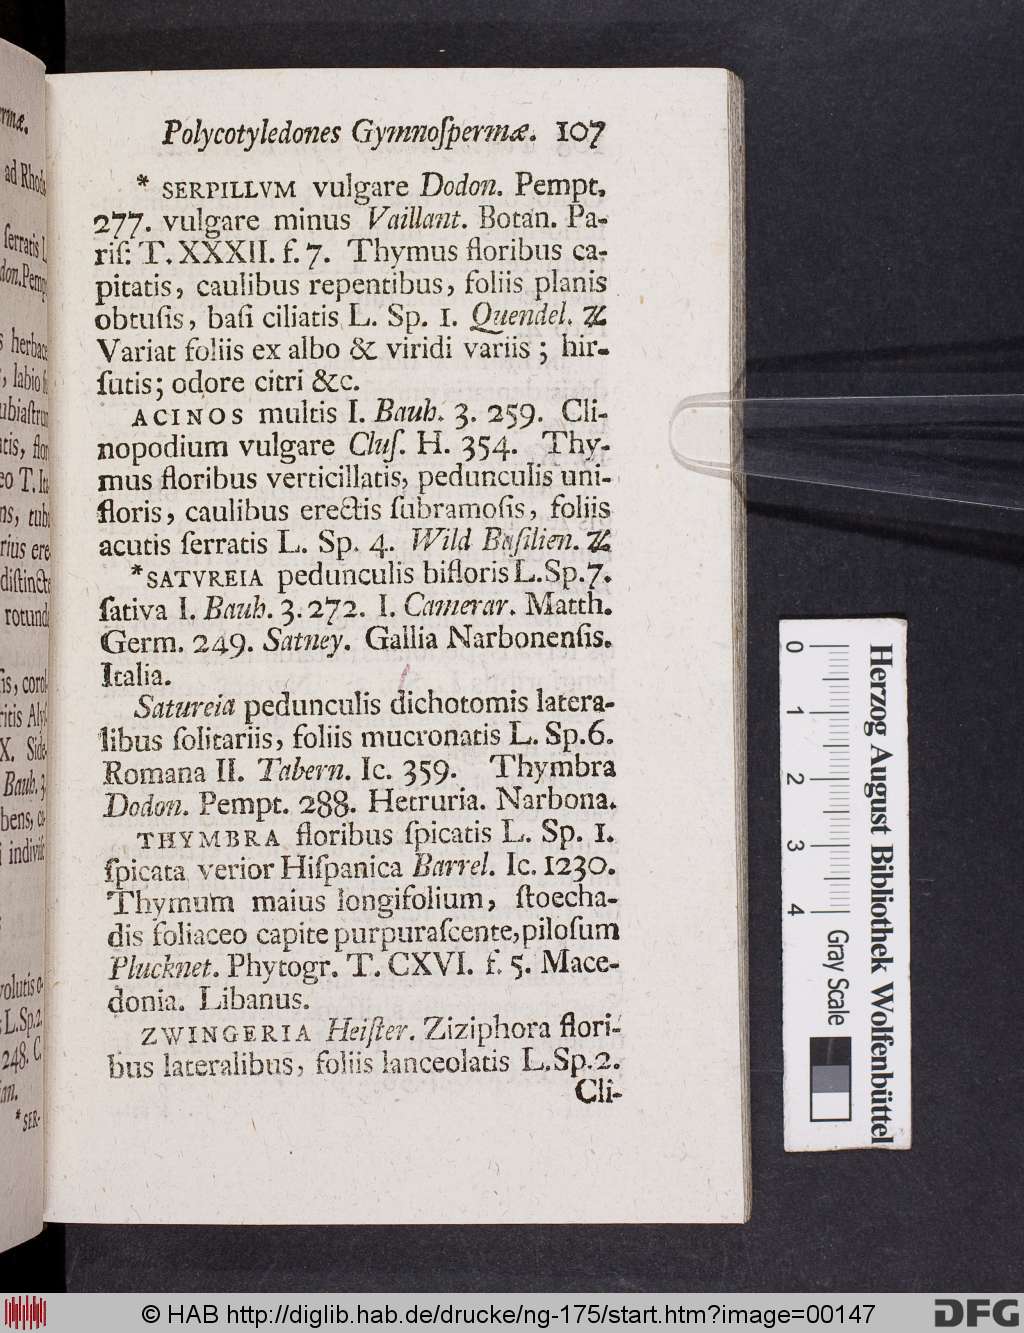 Polycotyledones Gymnoſpermæ. 107
* SERPILLVM vulgare Dodon. Pempt.
277. vulgare minus Vaillant. Botan. Pa-
riſ: T. XXXII. f. 7. Thymus floribus ca-
pitatis, caulibus repentibus, foliis planis
obtuſis, baſi ciliatis L. Sp. 1. Quendel. ♃
Variat foliis ex albo & viridi variis ; hir-
ſutis; odore citri &c.
ACINOS multis I. Bauh. 3. 259. Cli-
nopodium vulgare Cluſ. H. 354. Thy-
mus floribus verticillatis, pedunculis uni-
floris, caulibus erectis ſubramoſis, foliis
acutis ſerratis L. Sp. 4. Wild Baſilien. ♃
*SATVREIA pedunculis bifloris L.Sp.7.
ſativa I. Bauh. 3. 272. I. Camerar. Matth.
Germ. 249. Satney. Gallia Narbonenſis.
Italia.
Satureia pedunculis dichotomis latera-
libus ſolitariis, foliis mucronatis L. Sp.6.
Romana II. Tabern. Ic. 359. Thymbra
Dodon. Pempt. 288. Hetruria. Narbona.
THYMBRA floribus ſpicatis L. Sp. 1.
ſpicata verior Hiſpanica Barrel. Ic. 1230.
Thymum maius longifolium, ſtoecha-
dis foliaceo capite purpuraſcente, piloſum
Plucknet. Phytogr. T. CXVI. f. 5. Mace-
donia. Libanus.
ZWINGERIA Heiſter. Ziziphora flori-
bus lateralibus, foliis lanceolatis L.Sp.2.
Cli-
ad Rhod
ſerratis L
herbace
labio
tis, flor
eo T. In
ns, tub
rius ere
diſtincte
rotund
is, corol
ritis Aly
X. Side-
Bauh. 3
bens, c
i indiviſ
volutis o-
L.Sp.2.
248. C.
*SER-
0 1 2 3 4 Gray Scale
Herzog August Bibliothek Wolfenbüttel
© HAB http://diglib.hab.de/drucke/ng-175/start.htm?image=00147
DFG